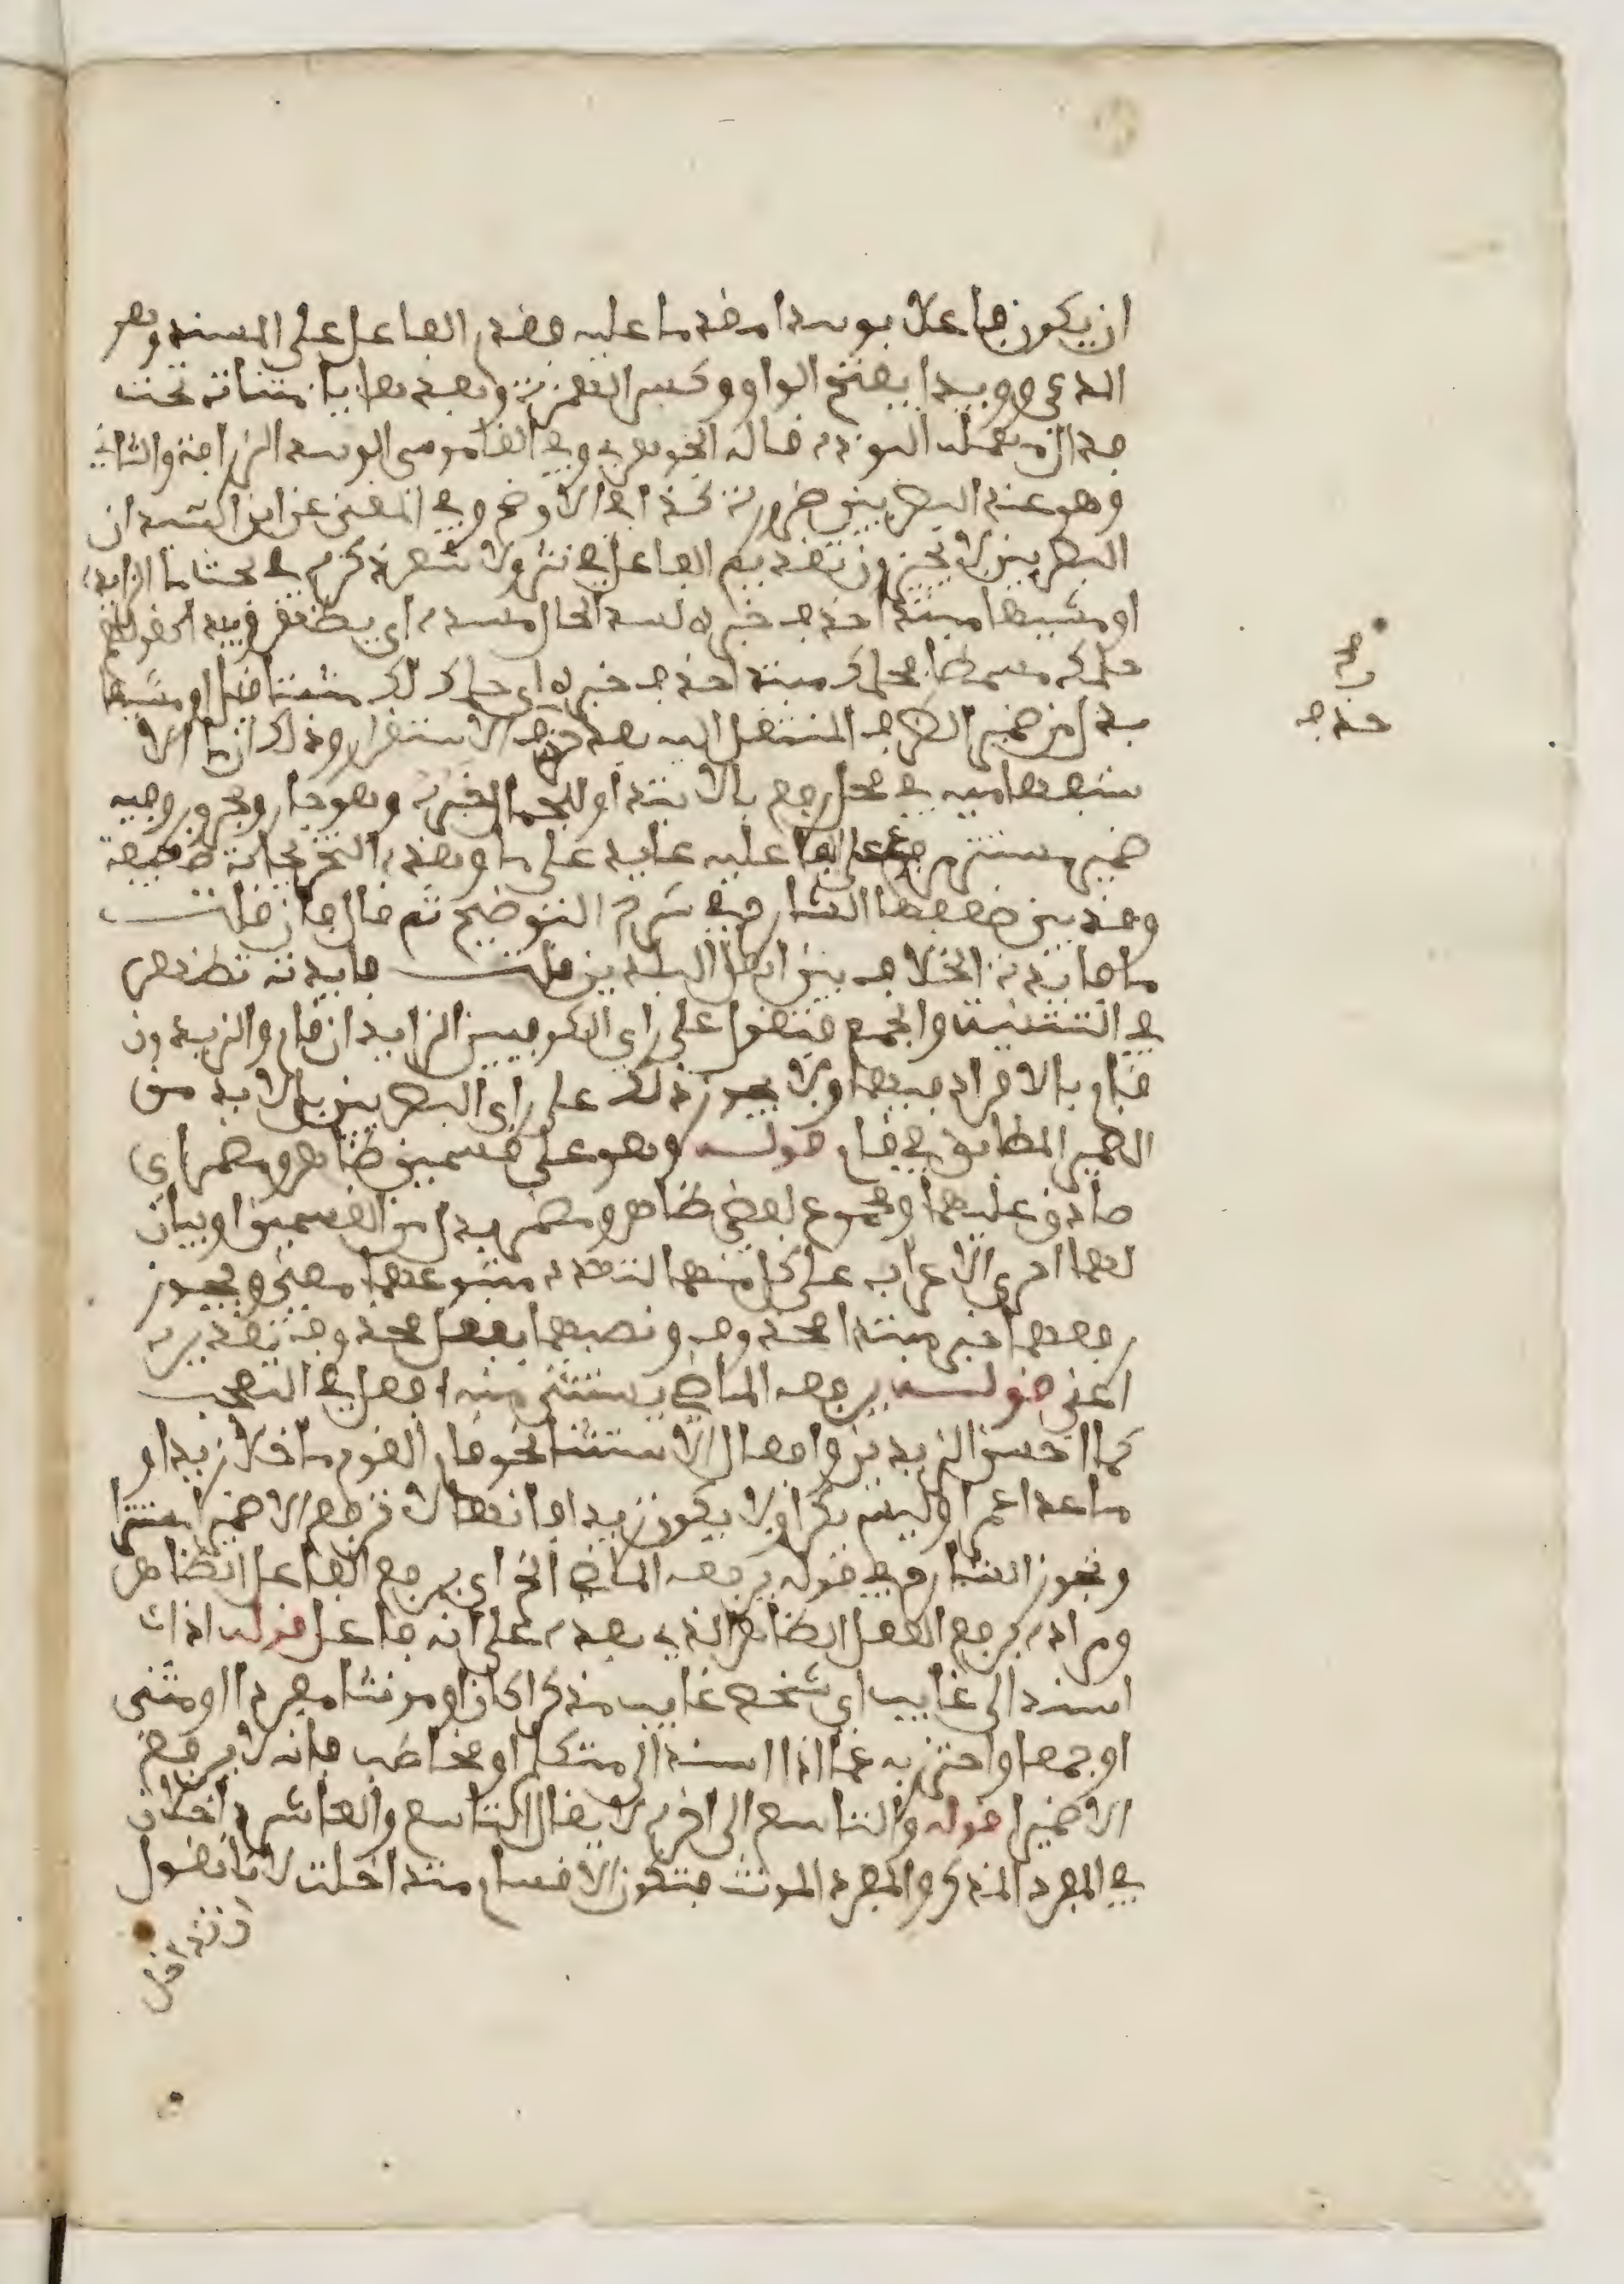 ان يكون فاعلا بوءيدا مقدما عليه فقدم الفاعل على المسند وهو
المدعى ووءيدا بفتح الواو وكسر الهمزة وبعدها ياء مثناة تحت
فدال مهملة التودة قاله الجوهري وفي القاموس الوءيد الرزانة والثاني
وهو عند البصريين ضرورة كذا في الاوضح وفي المغني عن ابن السيد ان
البصريين لا يجيزون تقديم الفاعل في نثر ولا شعر
او مشيها مبتدا حذف خبره لسد الحال مسده اي يظهر وييدا كقولهم
حكمك مسمطا فحكمك مبتدا حذف خبره اي حكمك لك مثبتا قيل او مشيها
بدل من ضمير الظرف المنتقل اليه بعد حذف الاستقرار وذلك ان ما الا
ستفهامية في محل رفع بالابتداء وللجمال الخبر وهو جار ومجرور وفيه
ضمير مستتر مرفوع على الفاعلية عايد على ما وهذه التخريجات ضعيفة
وقد بين ضعفها الشارح في شرح التوضيح ثم قال فان قلت
ما فايدة الخلاف بين اهل البلدين قلت فايدته تظهر
في التثنية والجمع فتقول على راي الكوفيين الزيدان قام والزيدون
قام بالافراد فيهما ولا يجوز ذلك على راي البصريين بل لا بد من
الضمير المطابق في قام قوله وهو على قسمين ظاهر ومضمر اي
صادق عليهما ومجموع لفظي ظاهر ومضمر بدل من القسمين او بيان
لهما اجري الاعراب على كل منهما لتعدد متبوعهما معنى ويجوز
رفعهما خبر مبتدا محذوف ونصبهما بفعل محذوف تقديره
اعني قوله يرفعه الماضي يستثنى منه افعل في التعجب
كما احسن الزيدين وافعال الاستثنا نحو قام القوم ما خلا زيدا او
ما عدا عمرا وليس بكرا ولا يكون زيدا فانها لا ترفع الا ضميرا مستترا
وتجوز الشارح في قوله يرفعه الماضي الخ اي يرفع الفاعل الظاهر
ومراده يرفع الفعل الظاهر الذي بعده على انه فاعل قوله اذا
اسند الى غايب اي شخص غايب مذكرا كان او مونثا مفردا او مثنى
او جمعا واحترز به عما اذا اسند الى متكلم او مخاطب فانه لا يرفع
الا ضميرا قوله والتاسع الى اخره لا يقال التاسع والعاشر داخلان
في المفرد المذكر والمفرد المونث فتكون الاقسام متداخلة لانا نقول
حذف